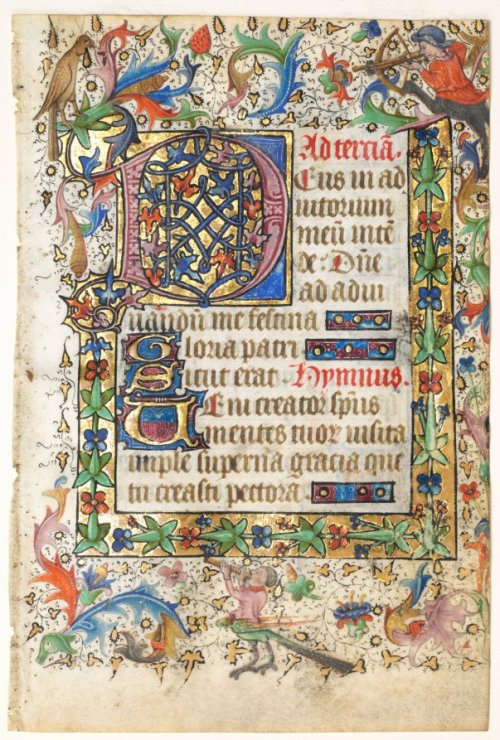 Ad terciã.
Deus in ad
iutorium
meũ intẽ
de: Dñe
ad adiu
uandũ me festina
Gloria patri
Sicut erat Hymnus.
Ueni creator spũs
mentes tuoꝝ visita
imple supernã gracia que
tu creasti pectora